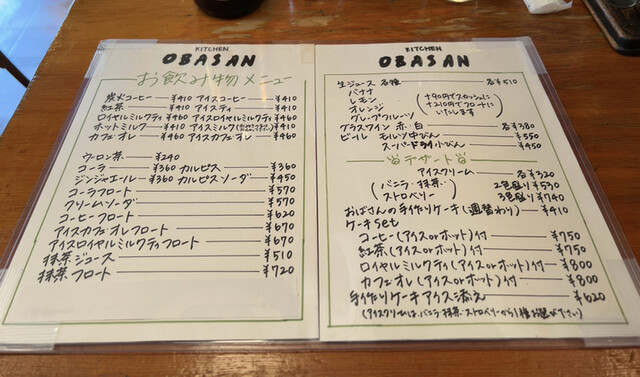 KITCHEN
OBASAN
お飲み物メニュー
炭火コーヒー ¥410 アイスコーヒー ¥410
紅茶 ¥410 アイスティ ¥410
ロイヤルミルクティ ¥460 アイスロイヤルミルクティ ¥460
ホットミルク ¥410 アイスミルク ¥410
カフェオレ ¥460 アイスカフェオレ ¥460
ウーロン茶 ¥240
コーラ ¥360 カルピス ¥360
ジンジャエール ¥360 カルピスソーダ ¥450
コーラフロート ¥570
クリームソーダ ¥570
コーヒーフロート ¥620
アイスカフェオレフロート ¥670
アイスロイヤルミルクティフロート ¥670
抹茶ジュース ¥510
抹茶フロート ¥720
KITCHEN
OBASAN
生ジュース 各種 各¥510
バナナ
レモン
オレンジ
グレープフルーツ
(+90円でスカッシュに
+210円でフロートに
いたします)
グラスワイン 赤・白 各¥380
ビール モルツ中びん ¥550
スーパードライ小びん ¥450
デザート
アイスクリーム 各¥320
(バニラ・抹茶・ストロベリー) 2色盛り ¥530
3色盛り ¥740
おばさんの手作りケーキ(週替わり) ¥410
ケーキset
コーヒー(アイスorホット)付 ¥750
紅茶(アイスorホット)付 ¥750
ロイヤルミルクティ(アイスorホット)付 ¥800
カフェオレ(アイスorホット)付 ¥800
手作りケーキアイス添え ¥620
(アイスクリームは、バニラ・抹茶・ストロベリーから1種お選び下さい)